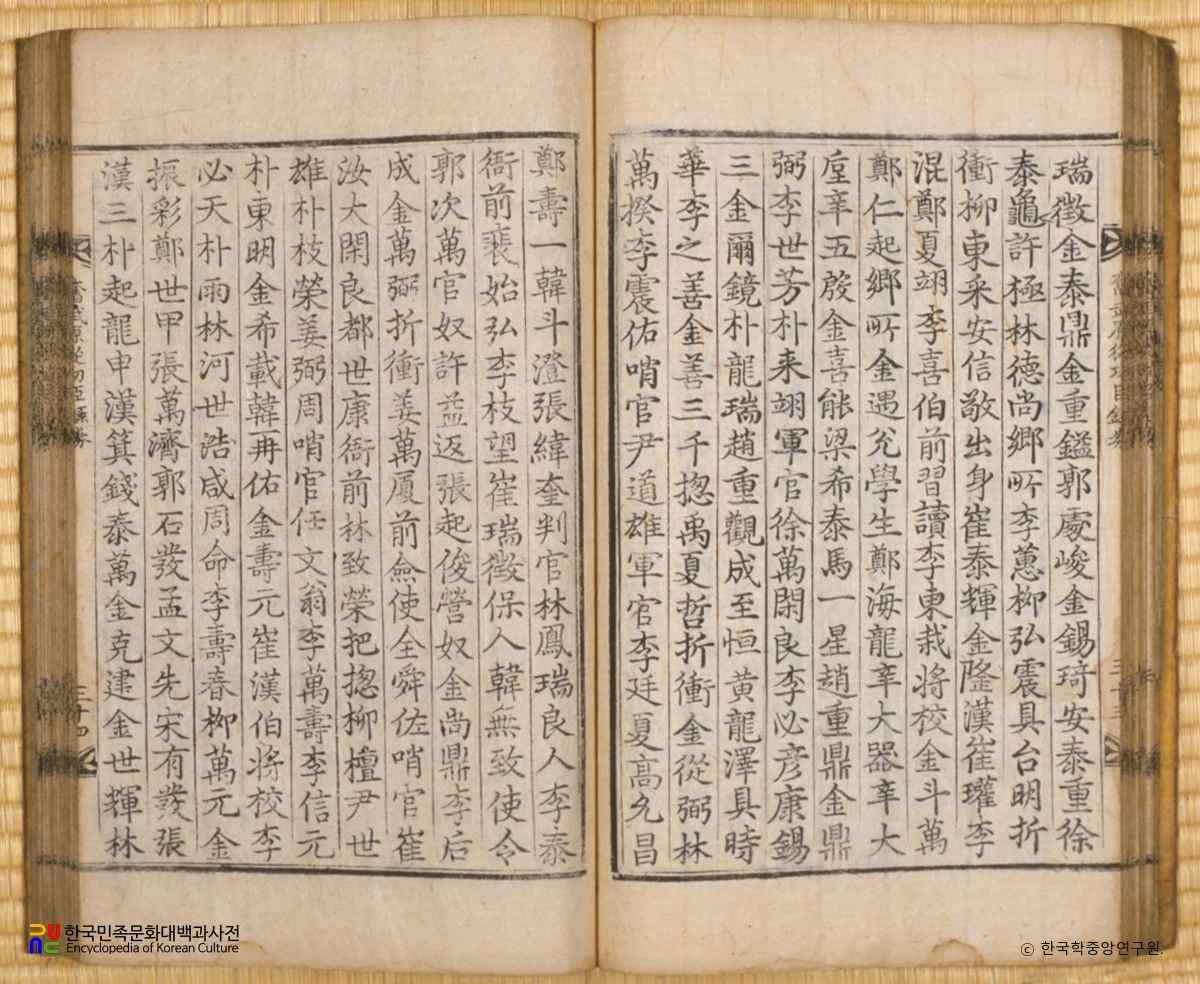 瑞徵金泰鼎金重鎰郭處峻金錫琦安泰重徐
泰龜許極林德尚鄕所李蕙柳弘震具台明折
衝柳東采安信敬出身崔泰輝金隆漢崔瓘李
混鄭夏翊李喜伯前習讀李東栽将校金斗萬
鄭仁起鄕所金遇兊學生鄭海龍辛大器辛大
垕辛五啟金喜能梁希泰馬一星趙重鼎金鼎
弼李世芳朴来翊軍官徐萬閑良李必彦康錫
三金爾鏡朴龍瑞趙重觀成至恒黄龍澤具時
華李之善金善三千揔禹夏哲折衝金從弼林
萬揆李震佑哨官尹道雄軍官李廷夏高允昌
三十三
鄭壽一韓斗澄張緯奎判官林鳳瑞良人李泰
衙前裴始弘李枝望崔瑞徵保人韓無致使令
郭次萬官奴許益返張起俊營奴金尚鼎李后
成金萬弼折衝姜萬厦前僉使全舜佐哨官崔
汝大閑良都世康衙前林致榮把揔柳檀尹世
雄朴枝榮姜弼周哨官任文翁李萬壽李信元
朴東明金希載韓再佑金壽元崔漢伯将校李
必天朴雨林河世浩咸周命李壽春柳萬元金
振彩鄭世甲張萬濟郭石發孟文先宋有發張
漢三朴起龍申漢箕錢泰萬金克建金世輝林
奮武原從功臣錄券
三十四
한국민족문화대백과사전
Encyclopedia of Korean Culture
ⓒ 한국학중앙연구원.